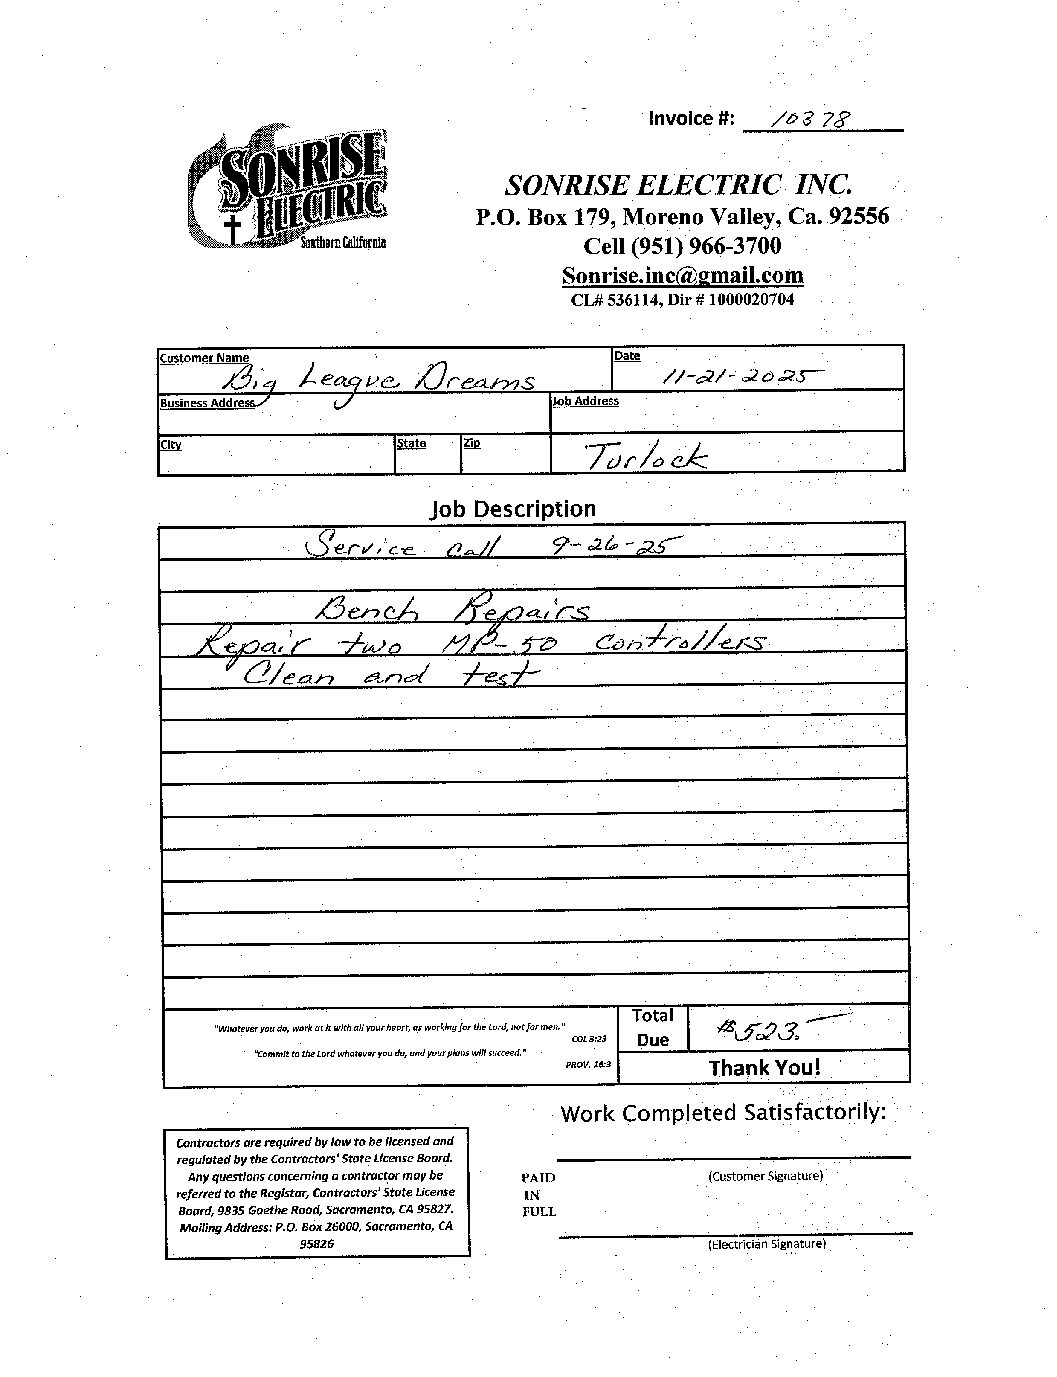 Invoice #: 10378
SONRISE
ELECTRIC
Southern California
SONRISE ELECTRIC INC.
P.O. Box 179, Moreno Valley, Ca. 92556
Cell (951) 966-3700
Sonrise.inc@gmail.com
CL# 536114, Dir # 1000020704
Customer Name
Big League Dreams
Date
11-21-2025
Business Address
Job Address
City
State
Zip
Turlock
Job Description
Service Call 9-26-25
Bench Repairs
Repair two MP-50 Controllers
Clean and test
"Whatever you do, work at it with all your heart, as working for the Lord, not for men."
COL 3:23
"Commit to the Lord whatever you do, and your plans will succeed."
PROV. 16:3
Total
Due
$523.—
Thank You!
Work Completed Satisfactorily:
Contractors are required by law to be licensed and
regulated by the Contractors' State License Board.
Any questions concerning a contractor may be
referred to the Registar, Contractors' State License
Board, 9835 Goethe Road, Sacramento, CA 95827.
Mailing Address: P.O. Box 26000, Sacramento, CA
95826
PAID
IN
FULL
(Customer Signature)
(Electrician Signature)